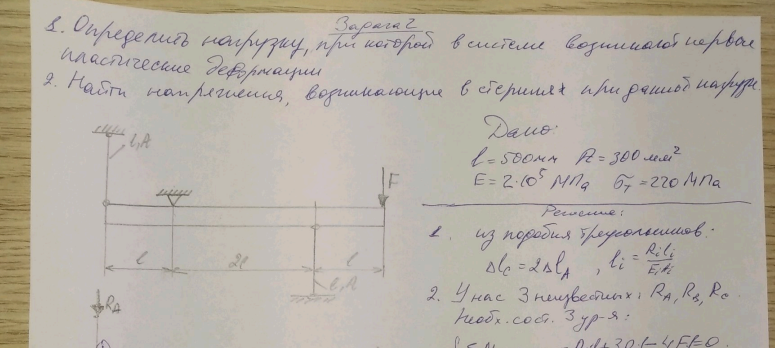 Задача 2
1. Определить нагрузку, при которой в системе возникают первые
пластические деформации
2. Найти напряжения, возникающие в стержнях при данной нагрузк.
Дано:
l = 500мм A = 300 мм²
E = 2·10⁵ МПа σт = 220 МПа
Решение:
1. из подобия треугольников:
Δlc = 2ΔlA , li = Rili/EiAi
2. У нас 3 неизвестных: RA, RB, Rc.
Необх. сост. 3 ур-я:
l, A
F
l
2l
l
l, A
RA